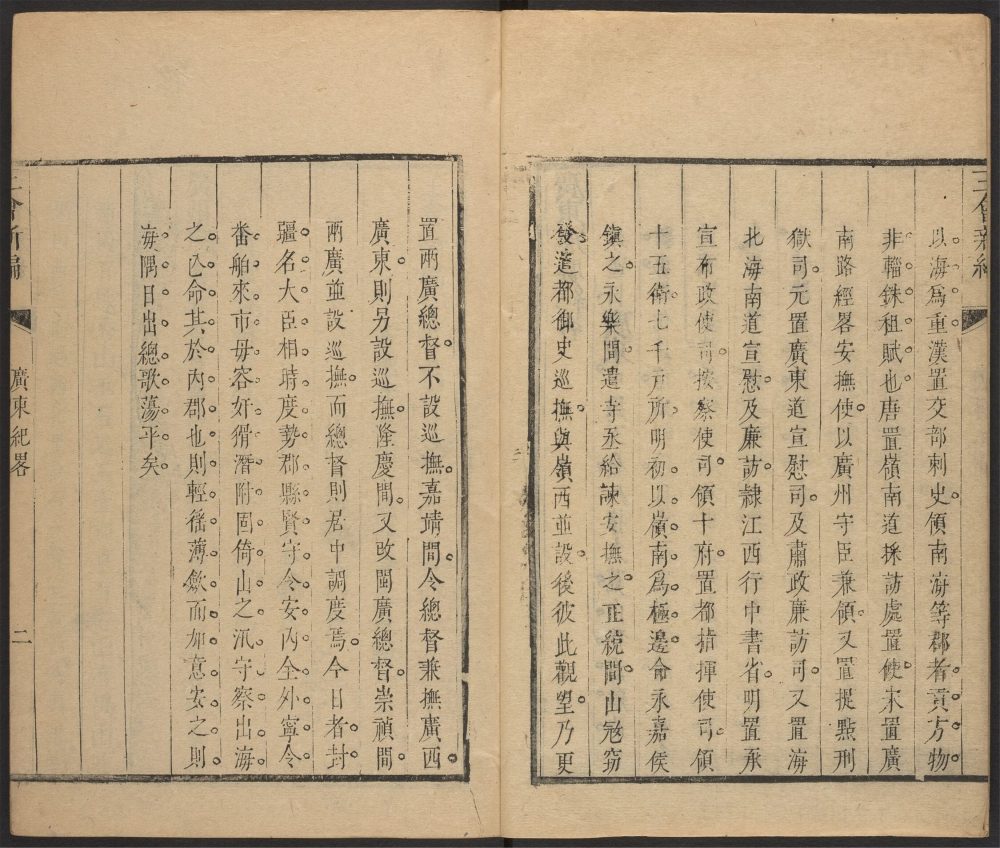 以海爲重漢置交部刺史領南海等郡者貢方物
非輜銖租賦也唐置嶺南道採訪處置使宋置廣
南路經畧安撫使以廣州守臣兼領又置提點刑
獄司元置廣東道宣慰司及肅政廉訪司又置海
北海南道宣慰及廉訪隷江西行中書省明置承
宣布政使司按察使司領十府置都指揮使司領
十五衛七千戸所明初以嶺南爲極邊命永嘉侯
鎮之永樂間遣寺丞給諫安撫之正統間山冦窃
發遣都御史巡撫與嶺西並設後彼此觀望乃更
置兩廣總督不設巡撫嘉靖間令總督兼撫廣西
廣東則另設巡撫隆慶間又改閩廣總督崇禎間
兩廣並設巡撫而總督則居中調度焉今日者封
疆名大臣相時度勢郡縣賢守令安內全外寧令
番舶來市毋容奸猾潛附固倚山之汛守察出海
之亾命其於內郡也則輕徭薄歛而加意安之則
海隅日出總歌蕩平矣
廣東紀畧
二